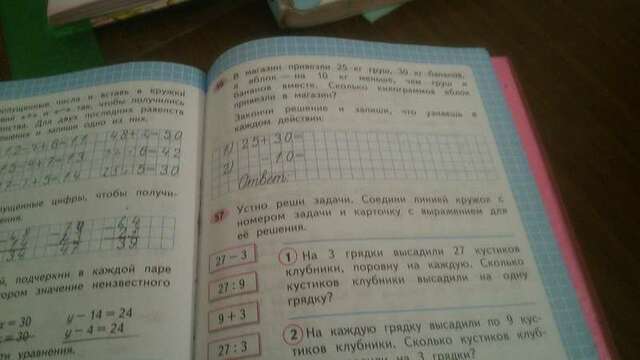 пропущенные числа и вставь в кружки
так, чтобы получились
Для двух последних равенств
и запиши одно из них.
48+4-30
25+5=30
цифры, чтобы получи-
34 47 39
подчеркни в каждой паре
тором значение неизвестного
= 30 y − 14 = 24
= 30 y − 4 = 24
уравнения.
В магазин привезли 25 кг груш, 30 кг бананов,
а яблок — на 10 кг меньше, чем груш и
бананов вместе. Сколько килограммов яблок
привезли в магазин?
Закончи решение и запиши, что узнаёшь в
каждом действии.
1) 25+30=
2) -10=
Ответ:
57 Устно реши задачи. Соедини линией кружок с
номером задачи и карточку с выражением для
её решения.
27 − 3
27 : 9
9 + 3
27 : 3
1 На 3 грядки высадили 27 кустиков
клубники, поровну на каждую. Сколько
кустиков клубники высадили на одну
грядку?
2 На каждую грядку высадили по 9 кус-
тиков клубники. Сколько кустиков клуб-
на 3 грядки?